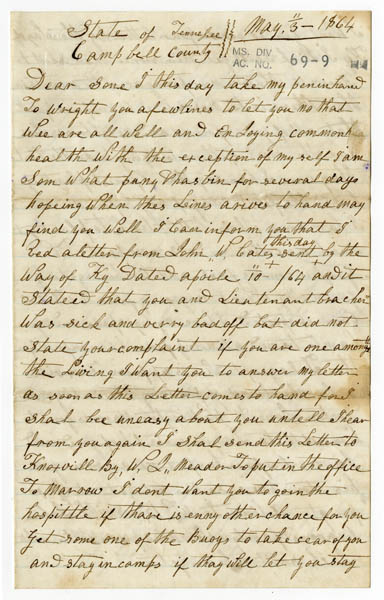 State of Tennesee } May, 11/3 – 1864
Campbell County }
MS. DIV.
AC. NO. 69-9
Dear Sone I this day take my peninhand
To Wright you afewlines to let you no that
Wee are all well and Enloying common
health With the exception of my self I am
Som What puny & has bin for several days
hopeing When thes Lines arives to hand may
find you Well I Can inform you that I
Red aletter from John W. Cates sent this day by the
Way of Ky Dated aprile 10th /64 and it
Stateed that you and Lieutenant bracher
Was sick and verry bad off but did not
State your complaint if you are one among
the Living I Want you to answer my letter
as soon as this Letter comes to hand for I
shal bee uneasy about you untell I hear
from you again I Shal send this Letter to
Knoxvill By, W. J., Meador To put in the office
To Marrow I dont Want you to goin the
hospittle if thare is enny other chance for you
Get some one of the Buoys to take cear of you
and stay in camps if thay will let you stay